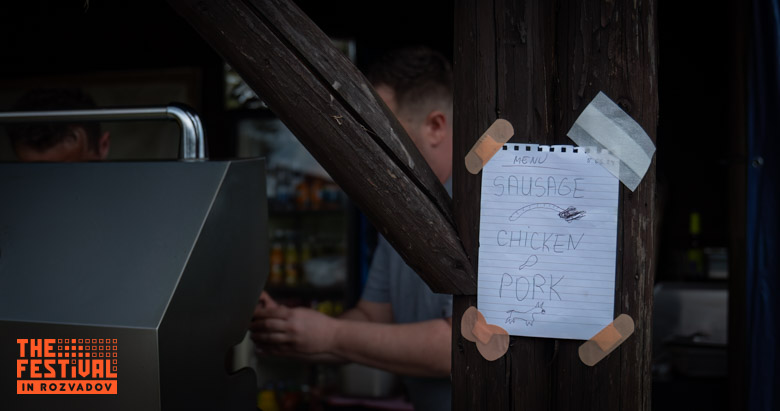 MENU
SAUSAGE
CHICKEN
PORK
THE
FESTIVAL
IN ROZVADOV